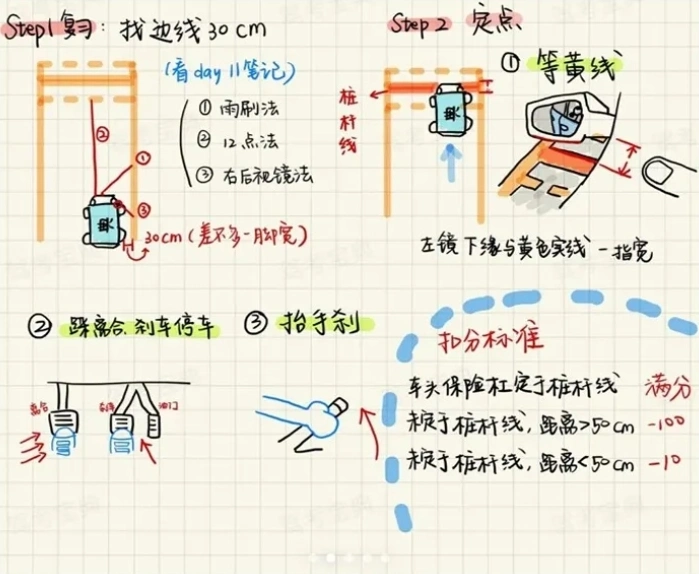 Step1复习: 找边线30cm
(看day 11笔记)
① 雨刷法
② 12点法
③ 右后视镜法
②
①
③
30cm(差不多一脚宽)
Step 2 定点
① 等黄线
桩杆线
左镜下缘与黄色实线 一指宽
② 踩离合、刹车停车
离合
刹车
油门
③ 抬手刹
扣分标准
车头保险杠定于桩杆线 满分
未定于桩杆线, 距离>50cm -100
未定于桩杆线, 距离<50cm -10